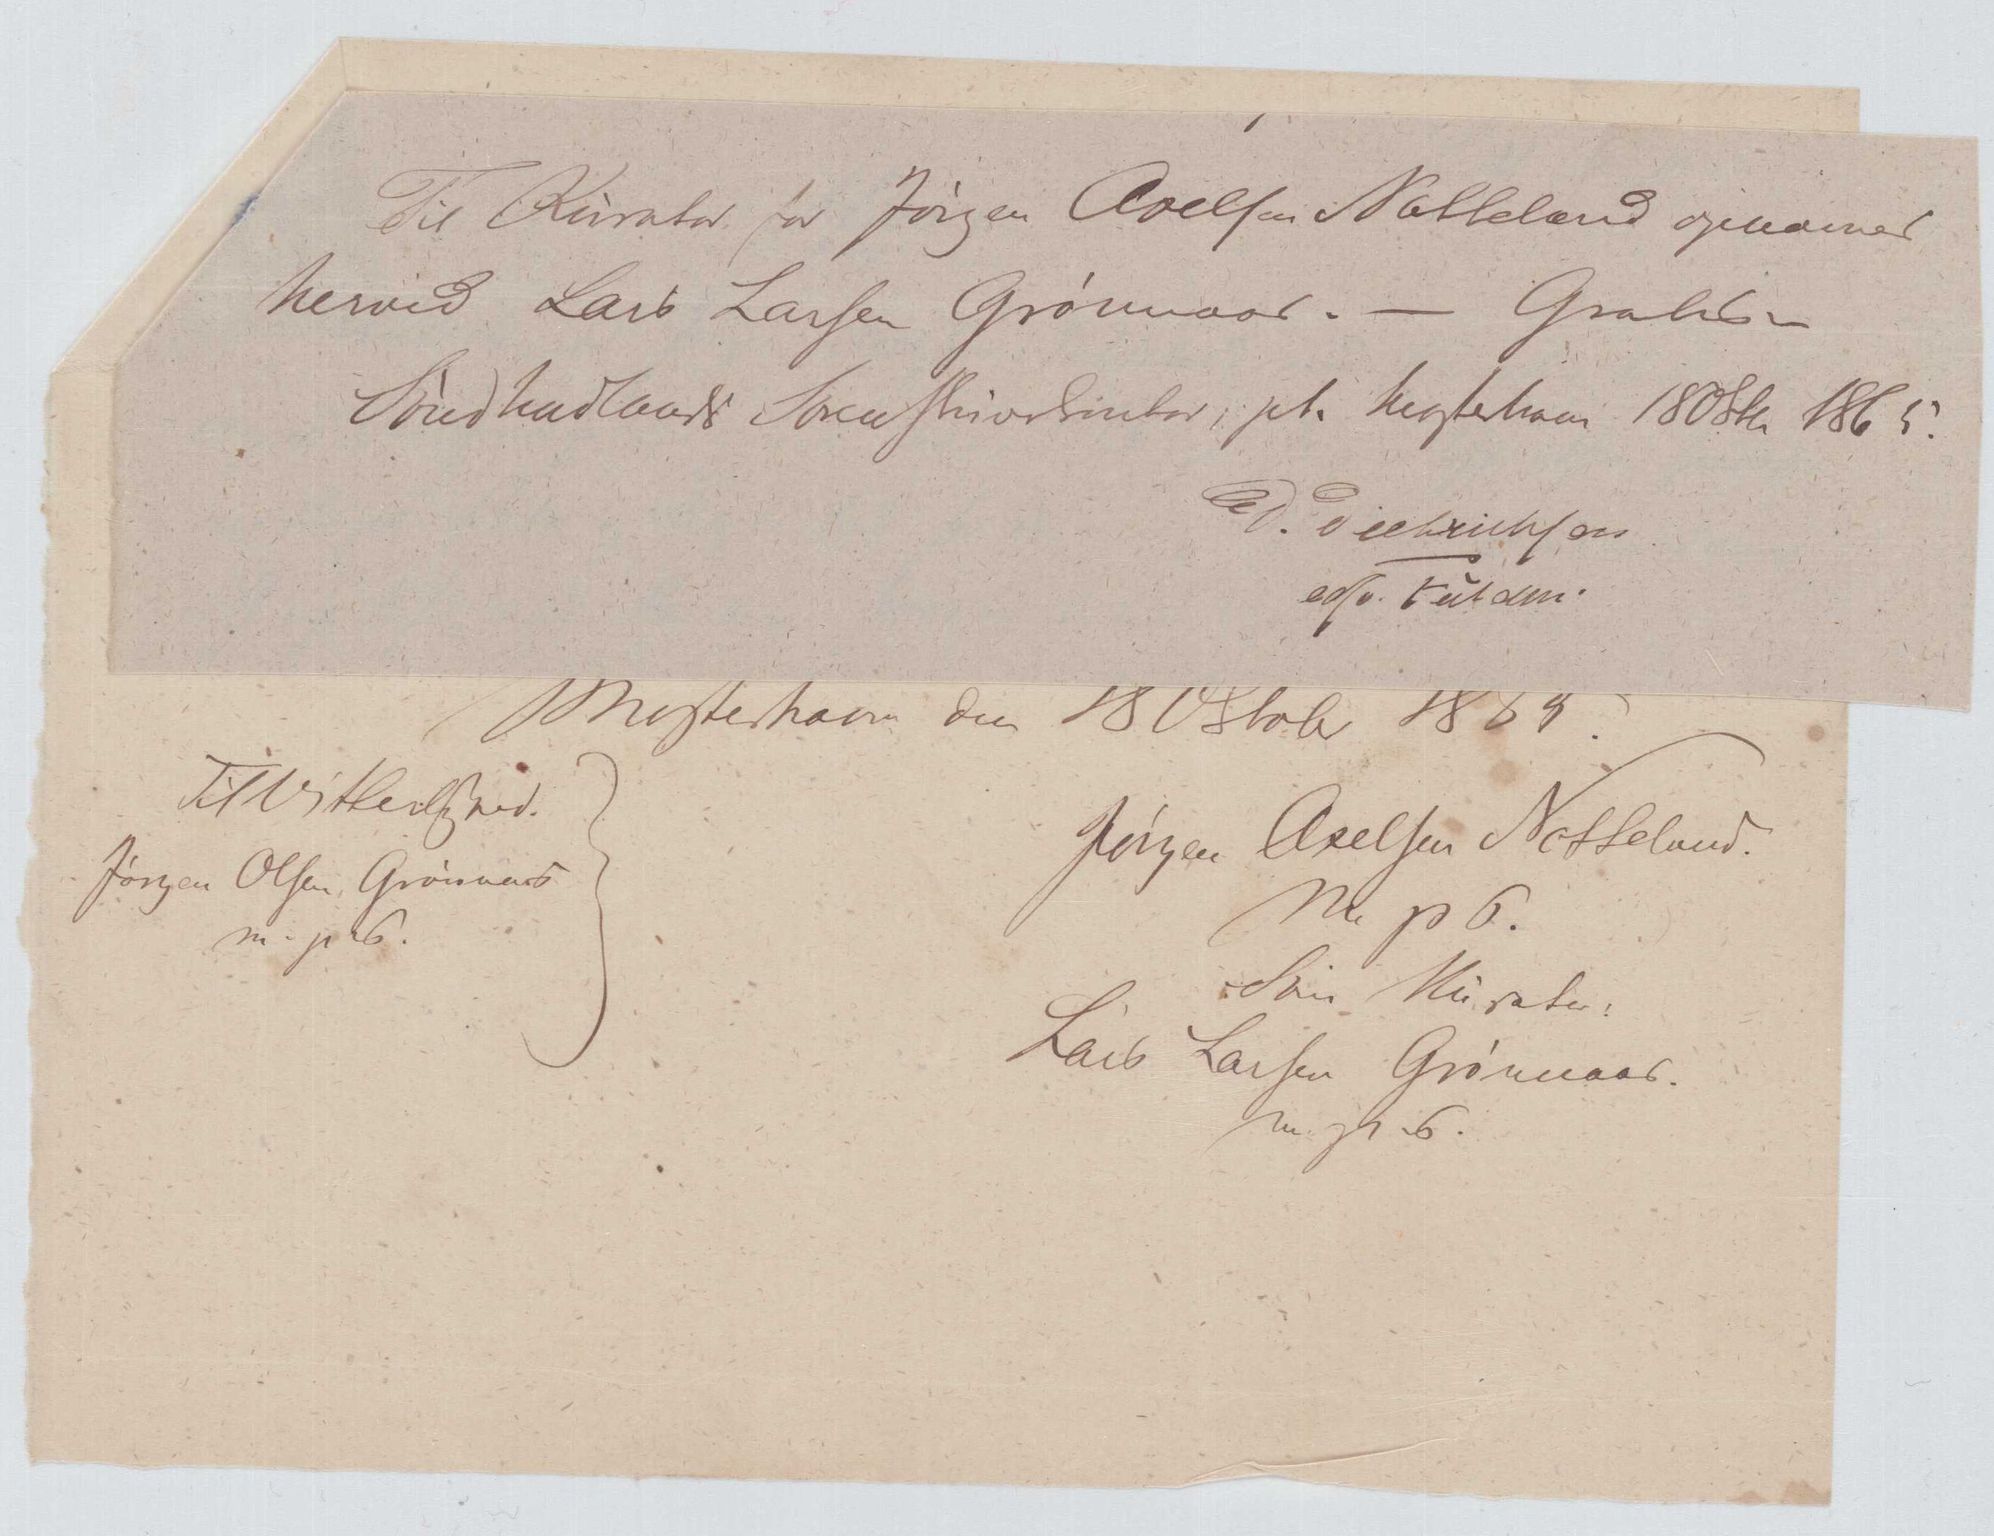 Til Kurator for Jörgen Axelsen Notteland opnævnes
herved Lars Larsen Grönnaas. — Gratis –
Söndhordlands Sorenskriverkontor, pt. Mosterhavn 18 Oktbr 1865.
Ed. Diethrichsen
edsv. Fuldm.
Mosterhavn den 18 Oktober 1865.
Til Vitterlighed.
Jörgen Olsen Grönnaas
m. p. S.
Jörgen Axelsen Notteland.
M. p S.
Som Kurator:
Lars Larsen Grönnaas.
m. p. S.